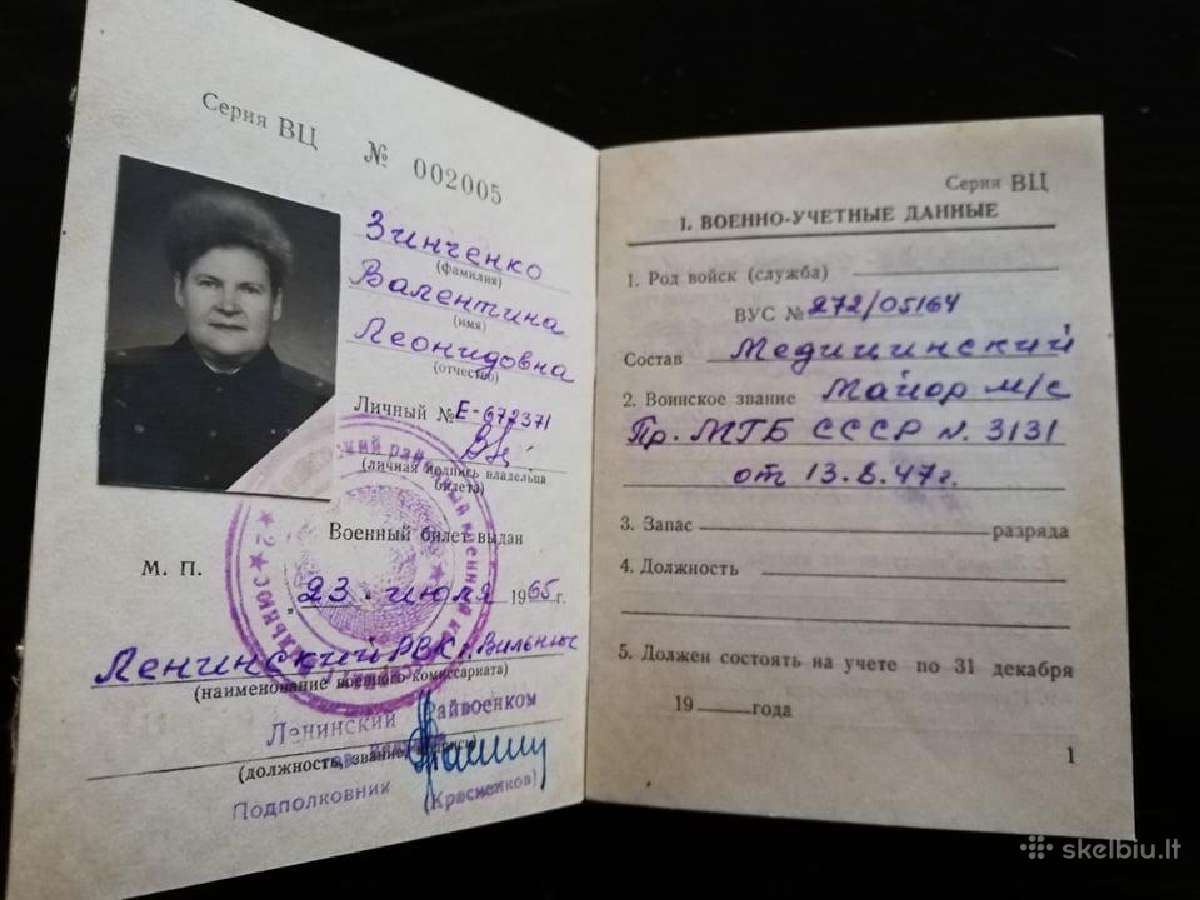 Серия ВЦ № 002005
Зинченко
(фамилия)
Валентина
(имя)
Леонидовна
(отчество)
Личный № Е-672371
(личная подпись владельца
билета)
Военный билет выдан
М. П.
„23. июля 1965 г.
Ленинский РВК г. Вильнюс
(наименование военного комиссариата)
Ленинский Райвоенком
(должность, звание,
Подполковник (Красненков)
Серия ВЦ
I. ВОЕННО-УЧЕТНЫЕ ДАННЫЕ
1. Род войск (служба)
ВУС № 272/05164
Состав Медицинский
2. Воинское звание Майор м/с
Пр. МГБ СССР N. 3131
от 13.8.47г.
3. Запас разряда
4. Должность
5. Должен состоять на учете по 31 декабря
19 года
1
skelbiu.lt